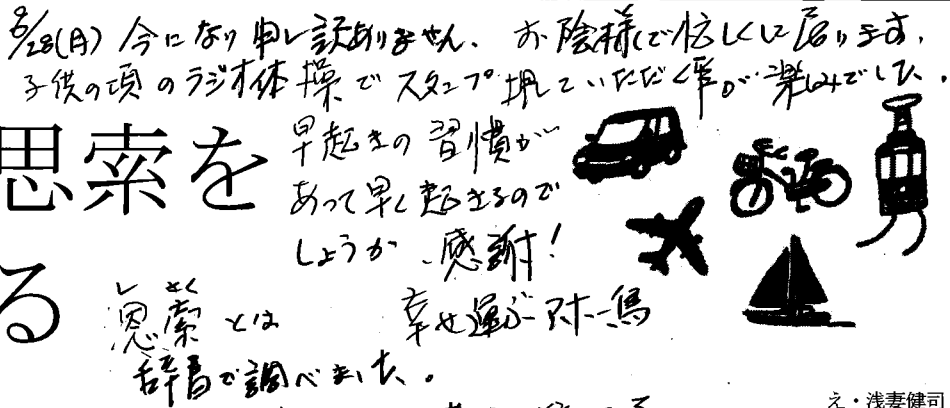 8/28(月) 今になり申し訳ありません。 お陰様で忙しくして居ります。
子供の頃のラジオ体操でスタンプ押していただく事が楽しみでした。
思索を
る
早起きの習慣が
あって早く起きるので
しょうか 、感謝!
しさく
思索とは
辞書で調べました。
幸せ運ぶ
え・浅妻健司